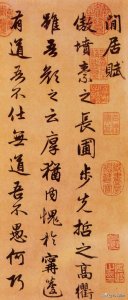 閒居賦
傲墳素之長圃步先哲之高衢
雖吾顏之云厚猶内愧於甯蘧
有道吾不仕無道吾不愚何巧